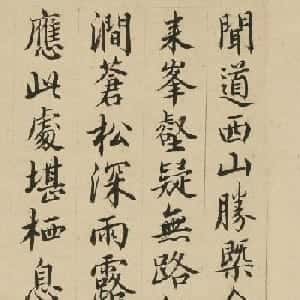 聞道西山勝槩
来峯壑疑無路
澗蒼松深雨露
應此處堪栖息